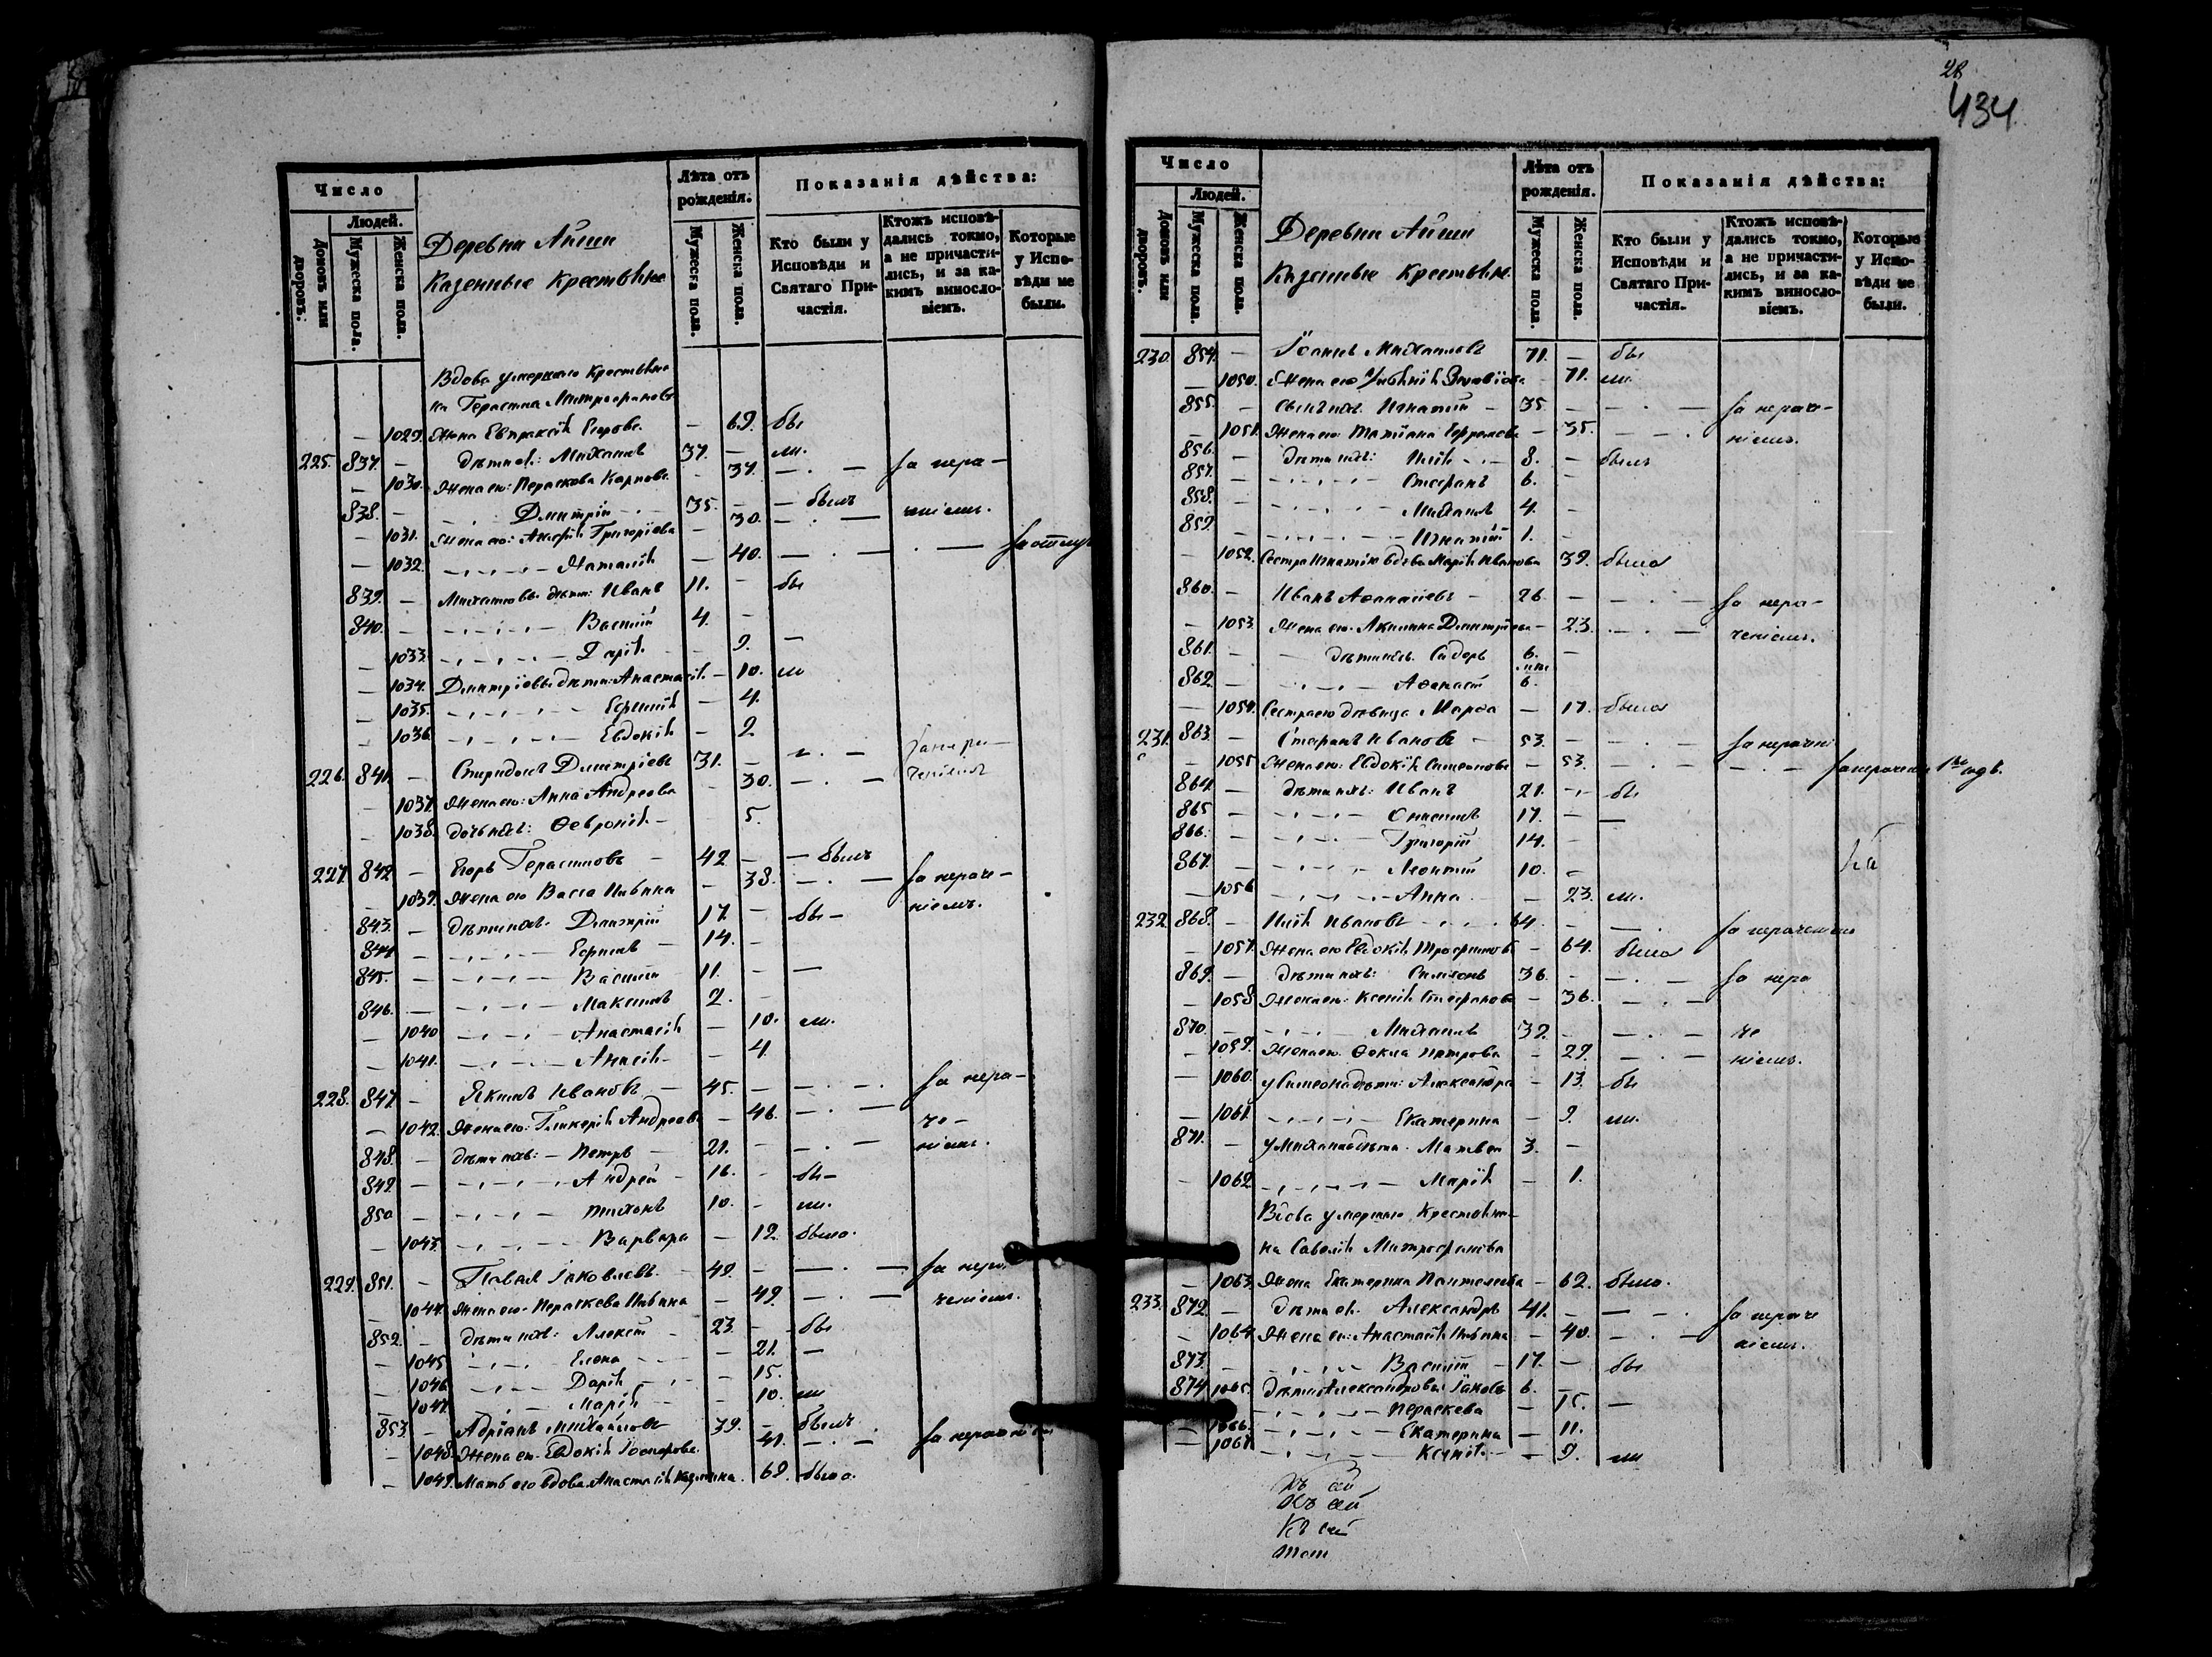 Число
Людей.
Домовъ или дворовъ.
Мужеска пола.
Женска пола.
Деревни Айши
Казенные крестьяне
Лѣта отъ рожденія.
Мужеска пола.
Женска пола.
Показанія дѣйства:
Кто были у Исповѣди и Святаго Причастія.
Ктожъ исповѣдались токмо, а не причастились, и за какимъ винословіемъ.
Которые у Исповѣди не были.
Вдова умершаго Крестьяни-
на Герасима Митрофанова
— 1029. Жена Евпраксія Егорова — 69. бы
225. 837. — Дѣти ея: Михаилъ 37. — ли.
— 1030. Жена его: Параскева Карпова — 37. — . — за нера-
838. — Дмитрій 35. — — былъ
— 1031. Жена его: Григоріева — 30. — . — ченіемъ.
— 1032. Наталія — 40. — . — . —
839. — Михаиловы дѣти: Иванъ 11. — бы
840. — Василій 4. —
— 1033. Дарія — 9. —
— 1034. Дмитріевы дѣти: Анастасія — 10. ли
— 1035. Евфимія — 4.
— 1036. Евдокія — 2
226. 841. — Спиридонъ Дмитріевъ 31. — — . — за нера-
— 1037. Жена его: Анна Андреева — 30. — . — ченіемъ
— 1038. Дочь ихъ: Ѳевронія — 5.
227. 842 — Егоръ Герасимовъ — 42 — — былъ
— 1039. Жена его Васса Ильина — 38. — . — за нераче-
843. — Дѣти ихъ: Дмитрій 17. — бы — ніемъ.
844. — Ефимъ — 14. —
845. — Василій 11. — —
846. — Максимъ 2. —
— 1040 Анастасія — 10. ли.
— 1041. — 4.
228. 847. — Якимъ Ивановъ — 45. — — . — за нера-
— 1042. Жена его: Гликерія Андреева — 46. — . — че-
848. — Дѣти ихъ: — Петръ — 21. — — . — ніемъ.
849. — Андрей — 16. — бы —
850 — Тихонъ 10. — ли.
— 1043. Варвара — 12. была.
229. 851. — Павелъ Іаковлевъ — 49. — — . — за нера
— 1044. Жена его: Параскева Ильина — 49. — . — ченіемъ.
852. — Дѣти ихъ: Алексѣй — 23. — бы
— 1045 Елена — 21. —
— 1046. Дарія — 15.
— 1047. Марія — 10. ли
853. — Адріанъ Михайловъ 39. — былъ.
— 1048. Жена его: Евдокія — 41. — . —
— 1049. Мать его вдова Анастасія 69. была.
28
434
Число
Людей.
Домовъ или дворовъ.
Мужеска пола.
Женска пола.
Деревни Айши
Казенные крестьяне
Лѣта отъ рожденія.
Мужеска пола.
Женска пола.
Показанія дѣйства:
Кто были у Исповѣди и Святаго Причастія.
Ктожъ исповѣдались токмо, а не причастились, и за какимъ винословіемъ.
Которые у Исповѣди не были.
230. 854. — Іоаннъ Михаиловъ 71. — бы
— 1050. Жена его — 71. ли.
855. — Сынъ ихъ Игнатій — 35. — — . — за нераче-
— 1051. Жена его: Татіана Ефремова — 35. — . ніемъ.
856. — Дѣти ихъ: Илія 8. — былъ
857. — Стефанъ 6. —
858. — Михаилъ 4. —
859. — Игнатій 1. —
— 1052. Сестра Игнатія вдова Марія Иванова 39. была
860. — Иванъ Аѳанасіевъ — 26 — — . — за нера-
— 1053. Жена его: Акилина Дмитріева — 23. — . — ченіемъ.
861. — Дѣти ихъ: Сидоръ 6. —
862. — Аѳанасій 6.
— 1054. Сестра его дѣвица Марѳа — 17. была
231. 863. — Стефанъ Ивановъ — 53. — — . — за нераче
— 1055. Жена его: Евдокія Симеонова — 53. — . — — . —
864. — Дѣти ихъ: Иванъ 21. — бы
865 — 17. — —
866. — Григорій 14. —
867. — Леонтій 10. —
— 1056 Анна — 23. ли.
232 868. — Илія Ивановъ 64. — — . за нераченіемъ
— 1057. Жена его Евдокія Трофимова — 64. была
869. — Дѣти ихъ: Симеонъ 36. — — . — за нера
— 1058. Жена его: Ксенія Стефанова — 36. — . —
870. — Михаилъ 32. — — . — че
— 1059. Жена его: Ѳекла Петрова — 29. — . — ніемъ.
— 1060. у Симеона дѣти: Александра — 13. бы
— 1061. Екатерина — 9. ли.
871. — у Михаила дѣти: Матвей 3. —
— 1062 Марія — 1.
Вдова умершаго Крестьяни-
на Савелія Митрофанова
— 1063. Жена Екатерина Пантелеева — 62. была.
233. 872. — Дѣти ея: Александръ 41. — — . за нераче
— 1064. Жена его: Анастасія Ильина — 40. — . — ніемъ.
873. — Василій — 17. — бы
874. 1065. Дѣти Александровы: Іаковъ 6. —
Параскева — 15. —
— 1066. Екатерина — 11.
— 1067. Ксенія — 9. ли